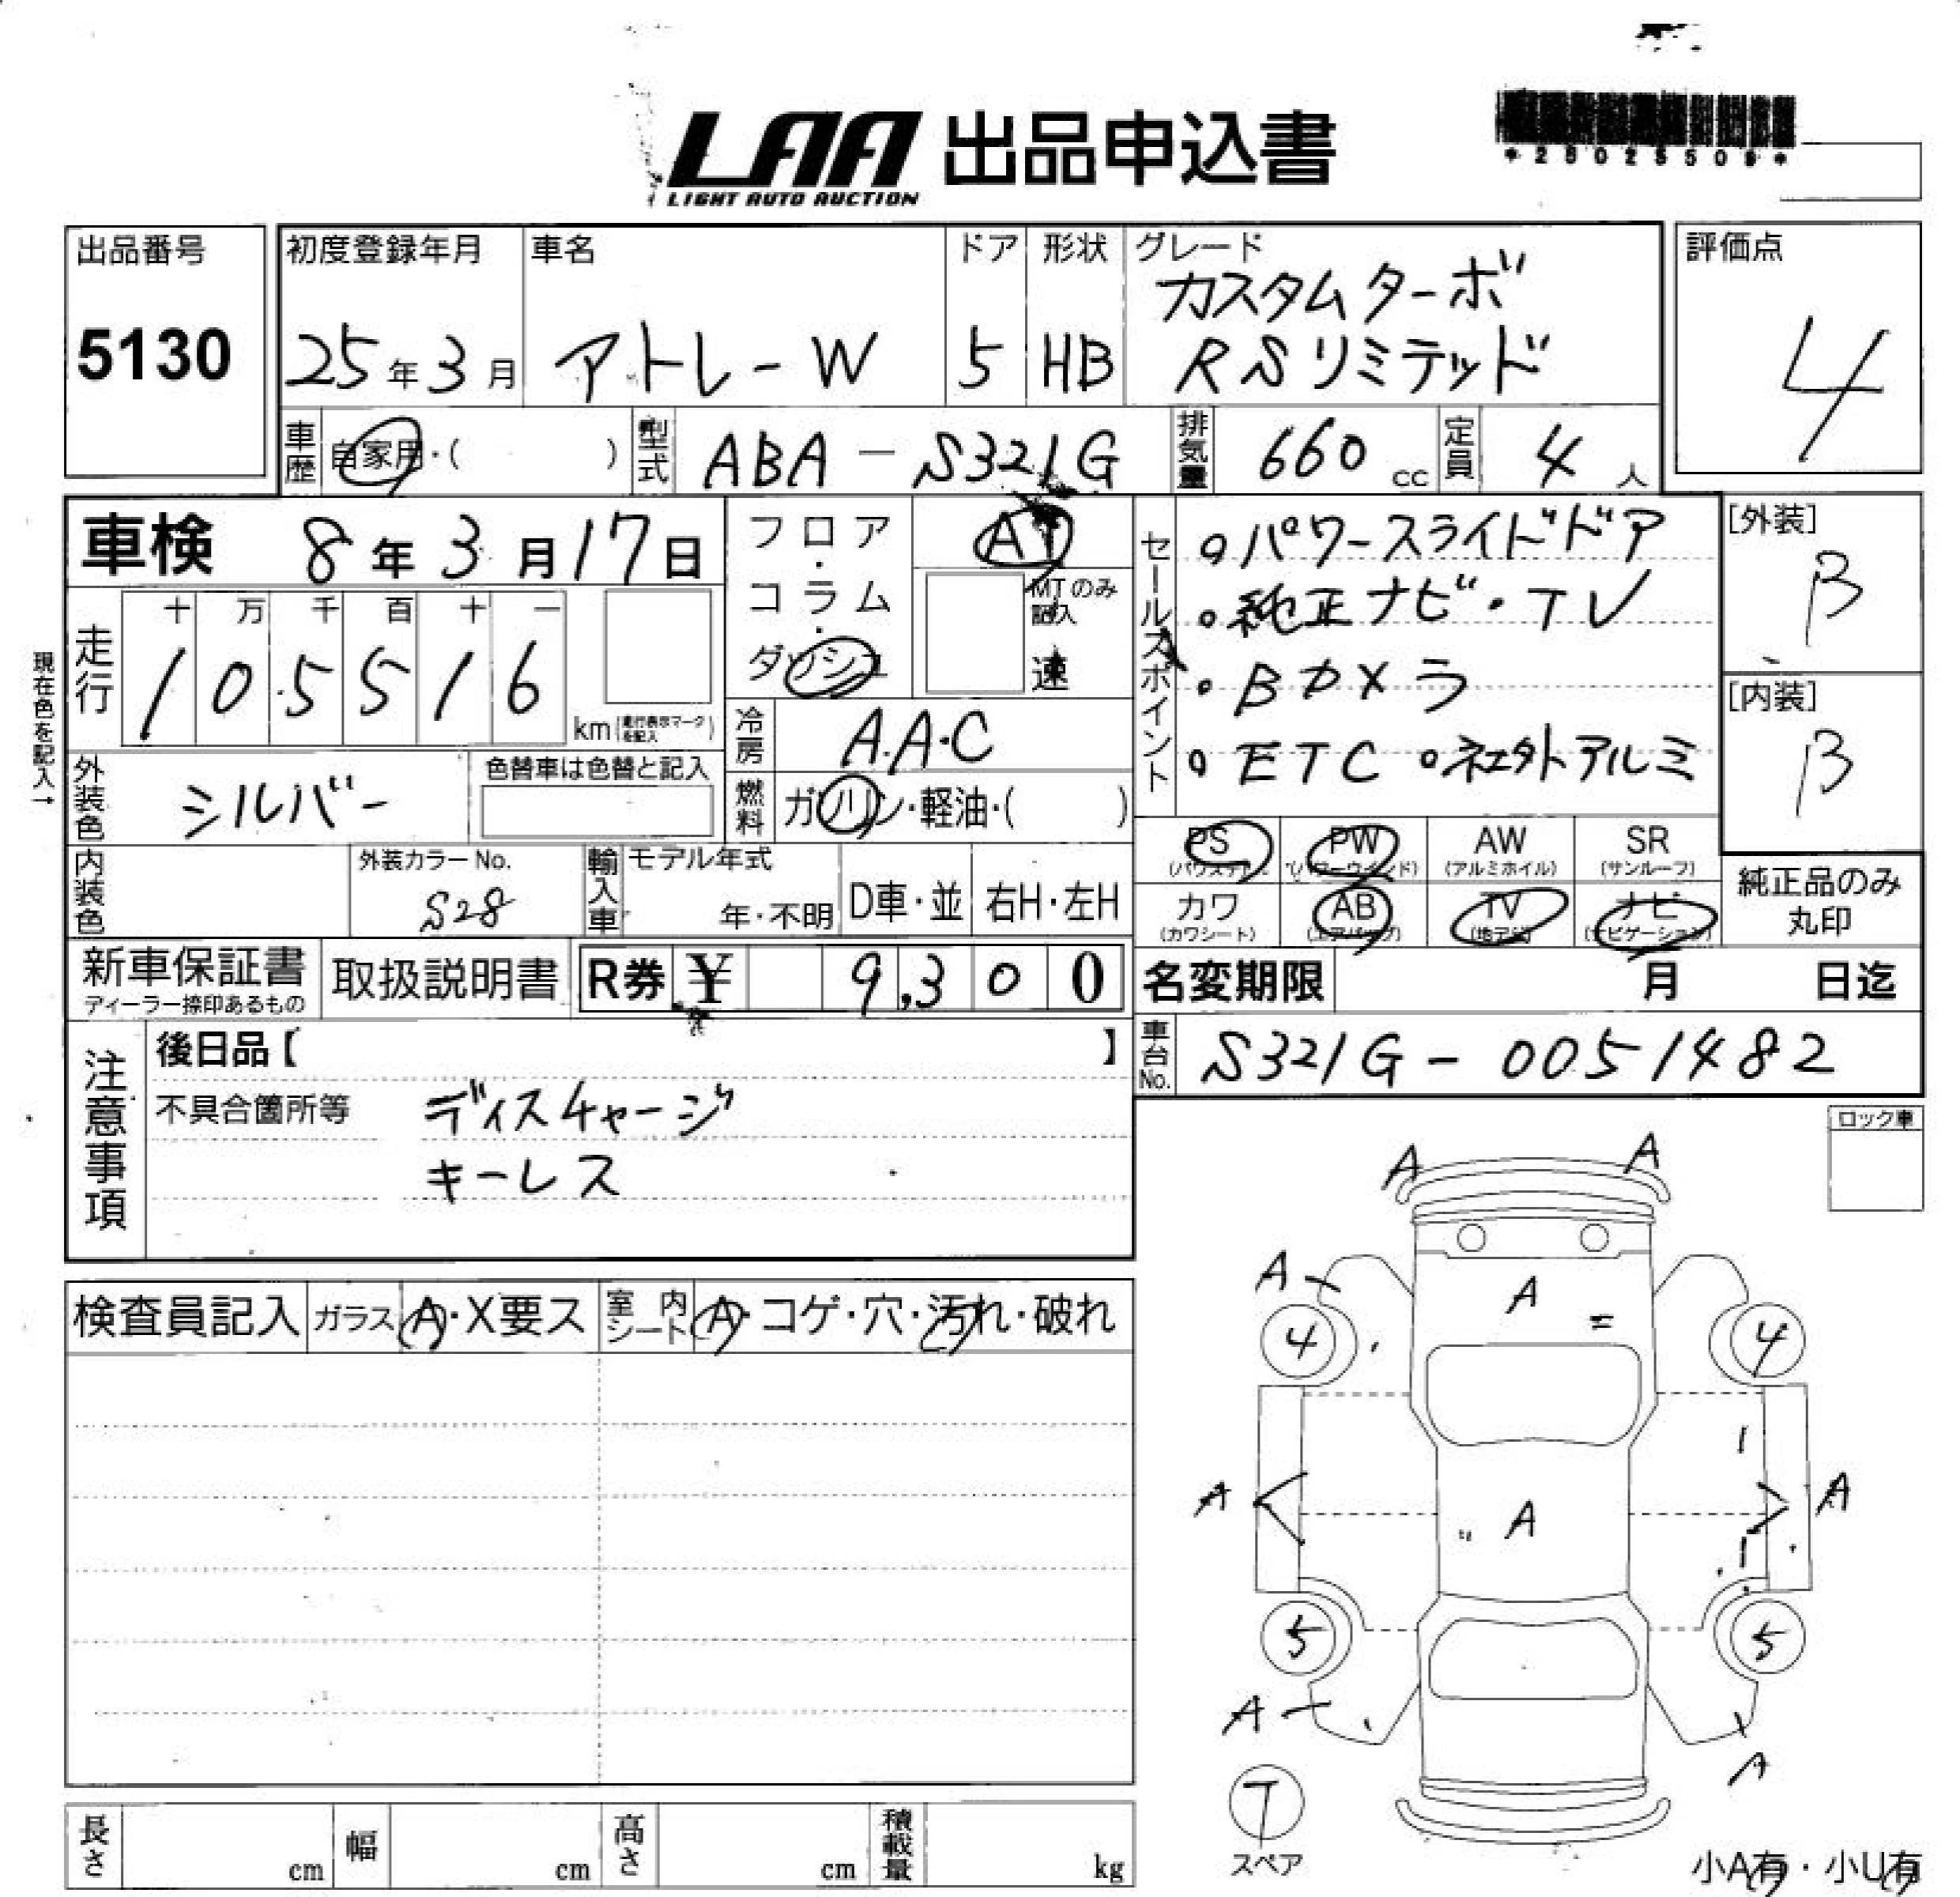 LAA 出品申込書
LIGHT AUTO AUCTION
*28025509*
出品番号 初度登録年月 車名 ドア 形状 グレード 評価点
5130 25年3月 アトレーW 5 HB カスタムターボ
RSリミテッド 4
車歴 自家用・( ) 型式 ABA-S321G 排気量 660 cc 定員 4 人
車検 8年3月17日
フロア・コラム・ダッシュ AT
MTのみ記入 速
走行 十 万 千 百 十 一
105516 km(走行表示マークを記入)
現在色を記入→
外装色 シルバー 色替車は色替と記入
冷房 A.A.C
燃料 ガソリン・軽油・( )
セールスポイント
・パワースライドドア
・純正ナビ・TV
・Bカメラ
・ETC ・社外アルミ
[外装] B
[内装] B
内装色 外装カラーNo. S28 輸入車 モデル年式 年・不明 D車・並 右H・左H
PS (パワステ) PW (パワーウインド) AW (アルミホイル) SR (サンルーフ)
カワ (カワシート) AB (エアバッグ) TV (地デジ) ナビ (ナビゲーション)
純正品のみ丸印
新車保証書 ディーラー捺印あるもの 取扱説明書 R券 ¥ 9,300
名変期限 月 日迄
車台No. S321G-0051482
注意事項
後日品【 】
不具合箇所等 ディスチャージ
キーレス
ロック車
検査員記入 ガラス A・X要ス 室内シート A・コゲ・穴・汚れ・破れ
A A
A A
4 4
A A A
5 5
A A
T
スペア
小A有・小U有
長さ cm 幅 cm 高さ cm 積載量 kg